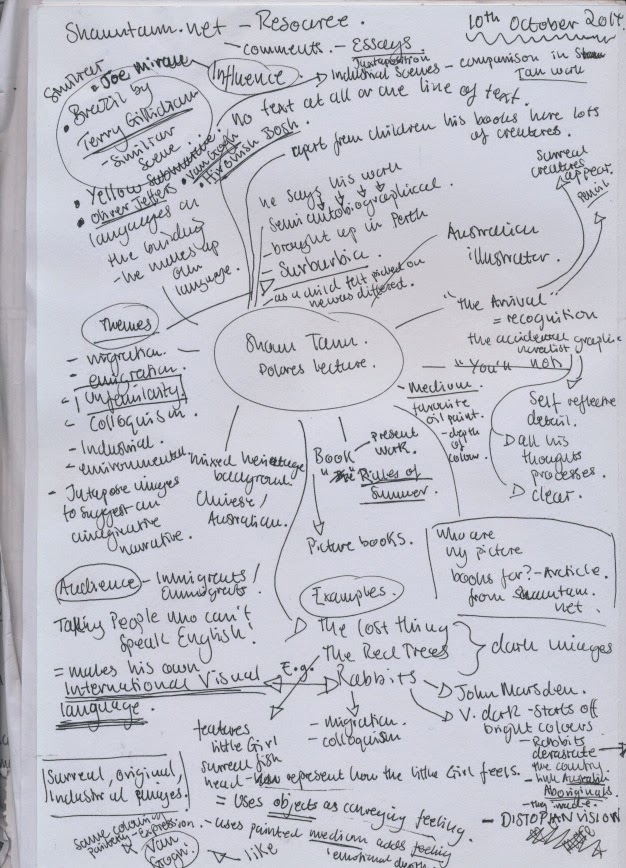 Shauntaun.net - Resource.
10th October 2014
- comments. - Essays
Juxtaposition
Similiar
• Joe
Influence
Industrial Scenes - comparison in
Tan work
• Brazil by
Terry Gillidian
- Similiar
Scene
• Yellow Submarine
• Oliver Jeffers
• Van Gogh
• Hironish Bosh
languages on
the building
- he makes up
own
language.
no text at all or one line of text.
apart from children his books have lots
of creatures.
surreal
creatures
appear.
he says his work
semi autobiographical.
- brought up in Perth
- Surburbia.
- as a child felt picked on
nervous different.
Australian
illustrator.
Themes
- migration.
- emigration.
- Unfamilarity
- Colloquism.
- Industrial.
- environmental
- Jutapose images
to suggest an
imaginative
narrative.
Shaun Tann.
Dolores lecture.
"The Arrival"
= recognition
the accidental graphic
novelist
"You'll not"
Self reflective
detail.
all his
thoughts
processes.
clear.
- Medium.
favourite
oil paint.
- depth
of
colour.
mixed heirtage
background.
Chinese /
Australian.
Book
- present
work.
Rules of
Summer.
Picture books.
Who are
my picture
books for? - Article.
from Shauntan.
net.
Audience - Immigrants /
Emmigrants.
Talking People who can't
Speak English!
= makes his own
International Visual
language.
Examples.
The Lost Thing
The Red Trees
dark images
E.g.
Rabbits
- migration.
- colloquism
John Marsden.
V. dark - Starts off
bright colours
- Rabbits
devastate
the country
- Australi
Aboriginals
- DISTOPIAN VISION
features
little Girl
surreal fish
head - represent how the little Girl feels.
= uses objects as conveying feeling.
- uses painted medium adds feeling
Surreal, original,
Industrial images.
same colouring
Painterly - expression.
Van
Gogh.
like